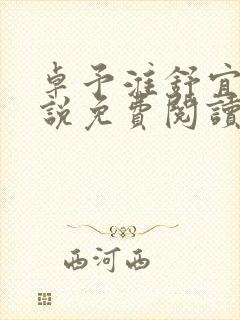 卓予淮舒宜
說免費閱讀
西河西